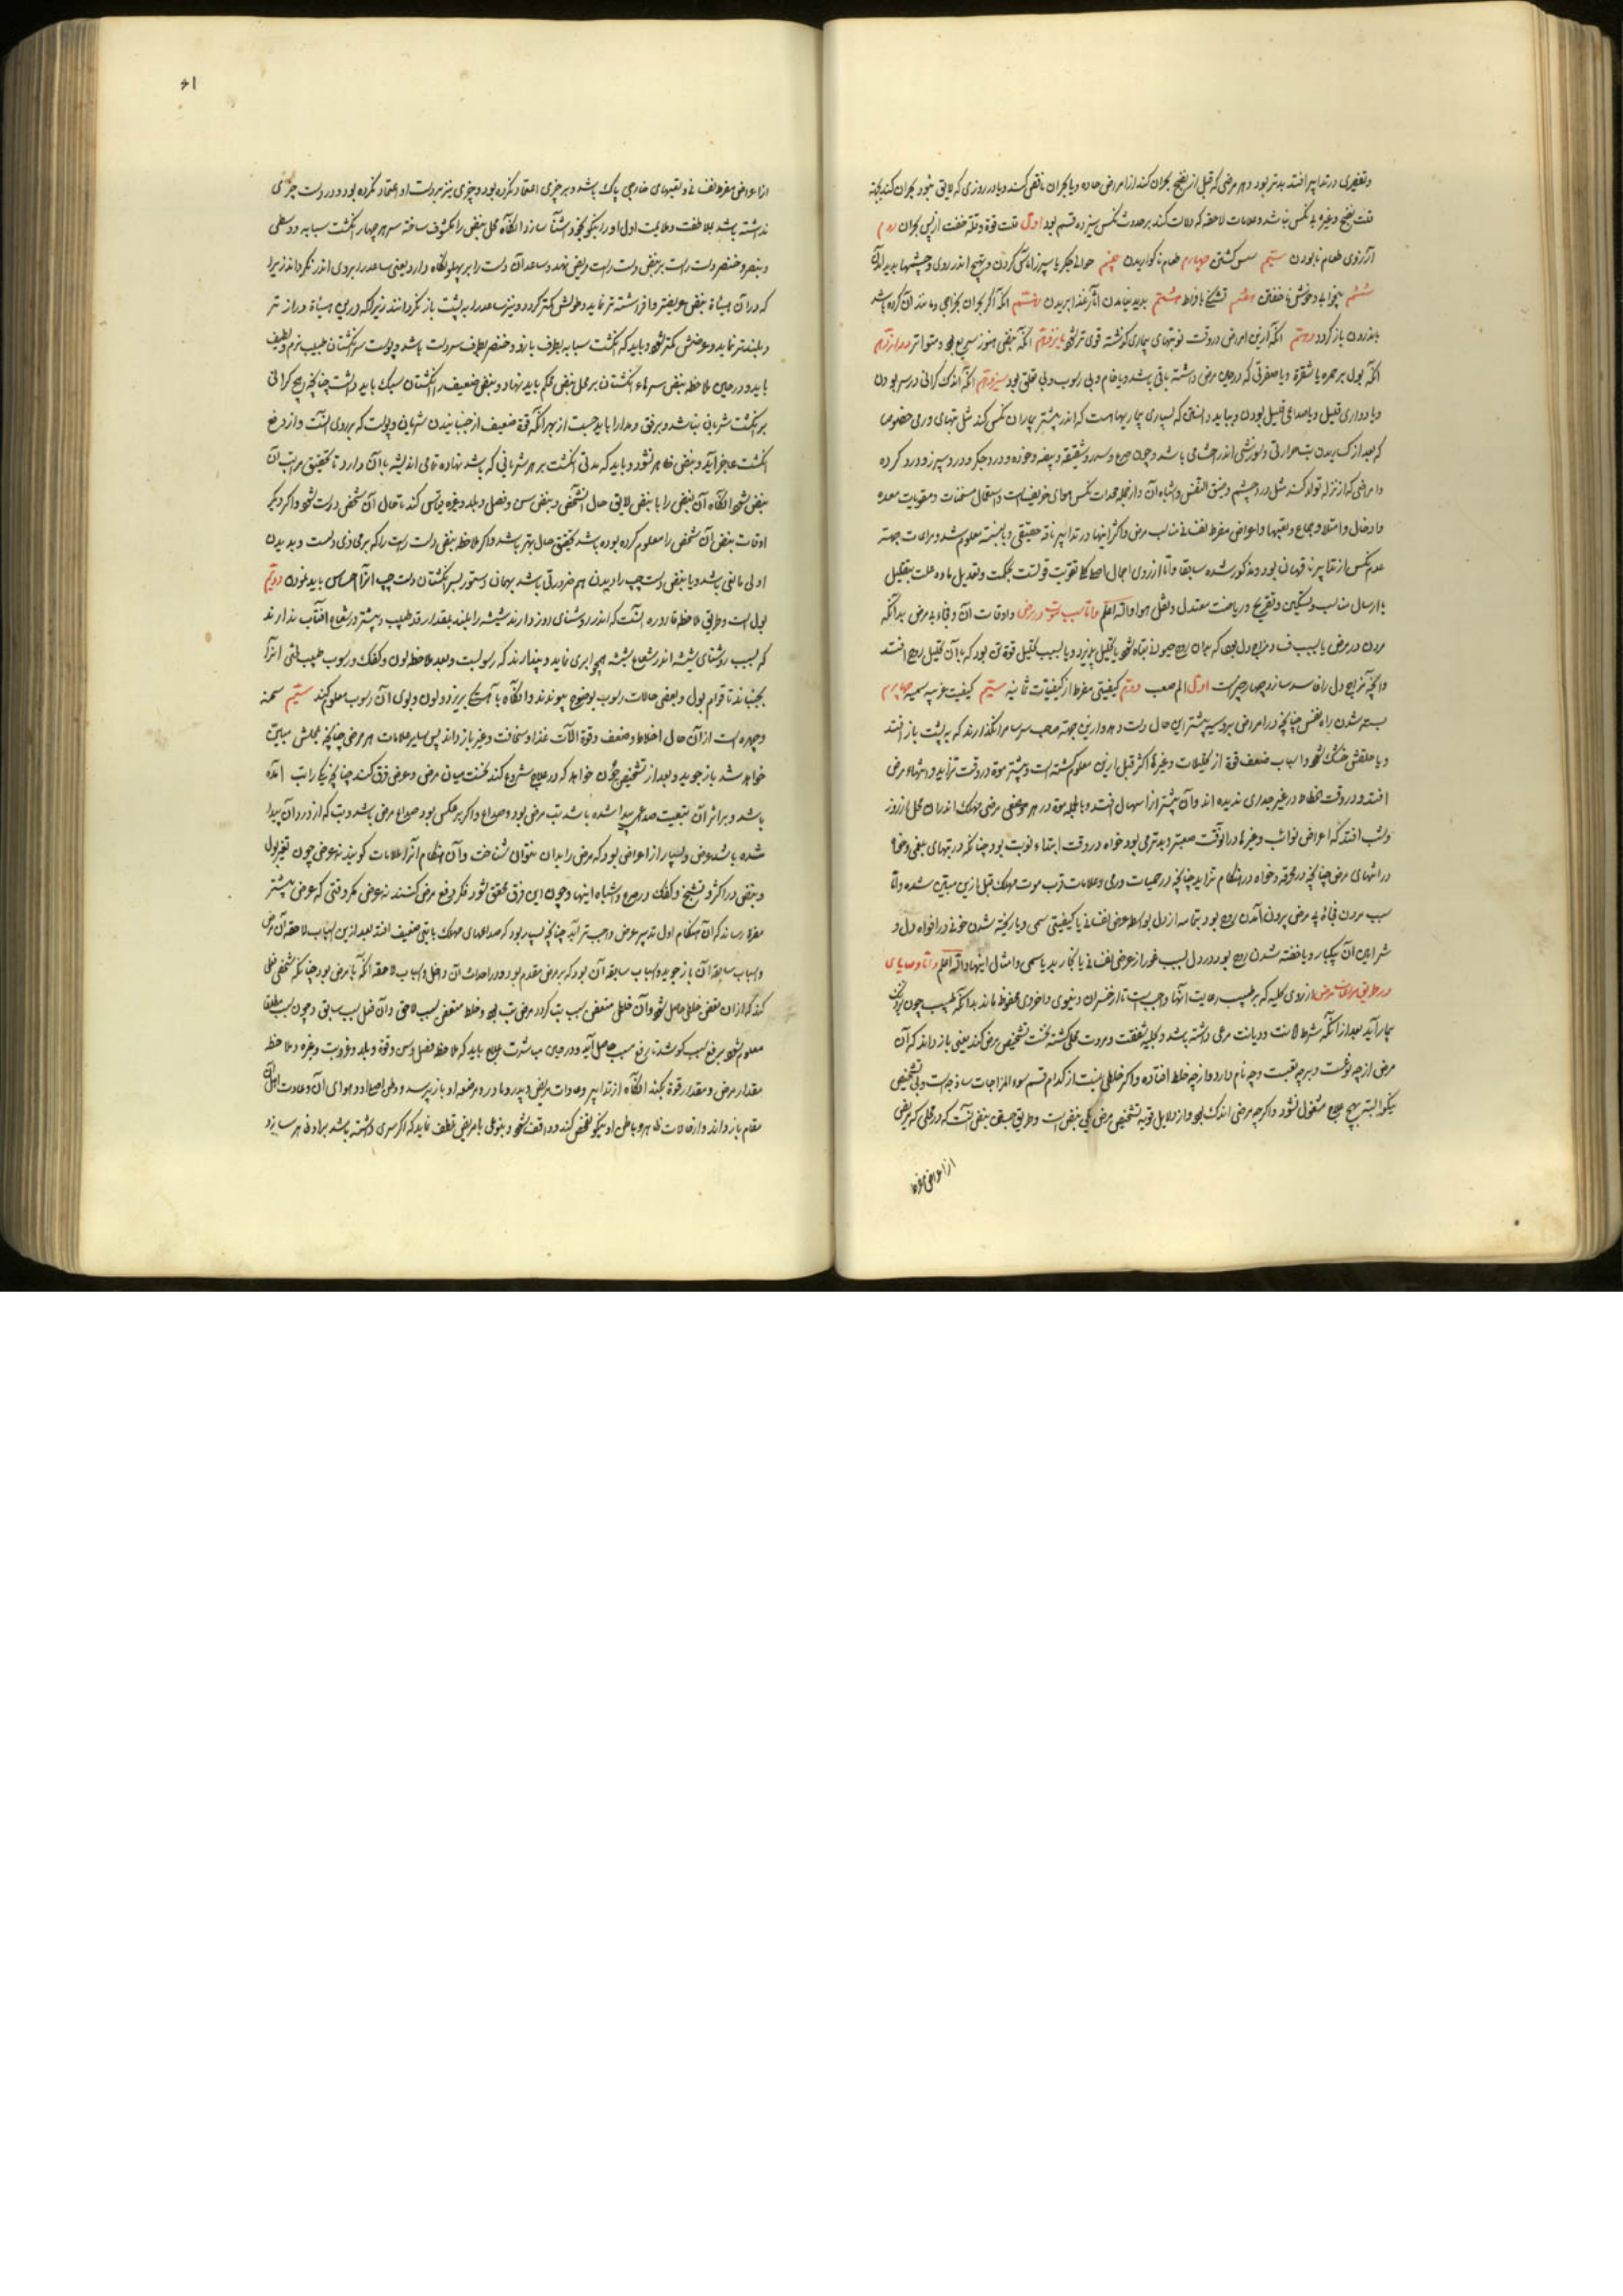 و تغییری در تدابیر افتد بدتر بود و هر مرضی که قبل از نضج بحران کند از امراض حاده و یا بحران ناقص کند و یا در روزی که لایق نبود بحران کند بجهة
نضج و غیره بی نکس نباشد و علامات لاحقه که دلالت کند بر حدوث نکس سیزده قسم بود اول قلت قوة و قلة خفت از پس بحران دوم
آرزوی طعام نابودن سیم کشتن چهارم طعام ناکواریدن پنجم حوالی جکر یا سپرز اماس کردن و تهیج اندر روی و چشمها پدید آمدن
ششم بیخوابی و خوش ناخفتن هفتم تشنکی بافراط هشتم پدید نیامدن آثار غذا بر بدن نهم آنکه اکر بحران بخراجی و مانند آن کرده باشد
باندرون باز کردد دهم آنکه آرین امراض در وقت نوبتهای بیماری کذشته قوی تر یازدهم آنکه نبض هنوز سریع و متواتر دوازدهم
آنکه بول بر حمره یا شقرة و یا صفرتی که در حین مرض داشته باقی باشد و یا خام و بی رسوب و بی تعلق بود سیزدهم آنکه اندک کرانی در سر بودن
و یا دواری قلیل و یا صداعی قلیل بودن و بباید دانستن که بسیاری بیماریها هست که اندر بیشتر بیماران نکس کند مثل تبهای ورمی خصوصا
که بعد از حرارتی و سوزشی اندر احشا می باشد و چون صرع و سدر و شقیقه و بیضه و خوذه و درد جکر و درد سپرز و درد کرده
و امراضی که از نزله تولد کند مثل درد چشم و ضیق النفس و اشباه آن و از جمله محدثات نکس هوای خریفیست و استعمال مسخنات و مقویات معده
و ادخال و امتلا و جماع و تعبها و اعراض مفرط نفسانی مناسب مرض و اکثر اینها در تدابیر ناقه حقیقی و معلوم شد و مراعات بجهته
عدم نکس از تدابیر ناقهان بود و مذکور شده سابقا و اما از روی اجمال اصطکا تقویت قوتست بحکمت و تعدیل ماده علت بتقلیل
بارسال مناسب و تسکین و تفریح و ریاضت معتدل و نقل هوا والله اعلم و اما سبب موت در مرض و اوقات آن و فجاءة بی مرض بدانکه
مردن در مرض یا بسبب فساد مزاج دل بود که بدان روح حیوانی تباه شود یا تحلیل پذیرد و یا بسبب تحلیل قوة تن بود که با آن تحلیل روح افتد
و آنچه مزاج دل را فاسد سازد و چهار چیز است اول الم صعب دوم کیفیتی مفرط از کیفیات ثمانیه سیم کیفیت غریبه سمیه چهارم
بسته شدن راه نفس چنانچه در امراض سرد سیر بیشتر این حال دست دهد و ازین جهته صاحب سرسام را نکذارند که به پشت باز افتد
و یا حلقش خشک شود و اسباب ضعف قوة از تحلیلات و غیرها اکثر قبل ازین معلوم کشته است و بیشتر موة در وقت تزاید و انتهاء مرض
افتد و در وقت انحطاط در غیر جدری ندیده اند و آن بیشتر از اسهال افتد و بالجمله موة در هر موضعی مرض مهلک اندران محل از روز
و شب افتد که اعراض نوائب و غیرها در آن وقت صعبتر و بدتر می بود خواه در وقت ابتداء نوبت بود چنانکه در تبهای بلغمی و خواه
در انتهای مرض چنانچه در محرقه و خواه در هنکام تزاید چنانچه در حمیات ورمی و علامات قرب موت مهلک قبل ازین مبین شده و اما
سبب مردن فجاءة بی مرض برون آمدن روح بود بتمامه از دل بواسطه عرض نفسانی یا کیفیتی سمی و یا ریخته شدن خونی در افواه دل و
شرایین آن بیکبار و یا خفته شدن روح بود در دل بسبب غور از عرض نفسانی یا بخار بد یا سمی و امثال اینها والله اعلم و اما وصایای
در طریق مراعات مرض از روی کلیه که بر طبیب رعایت آنها واجبست تا از خسران دنیوی و اخروی محفوظ ماند بدانکه طبیب چون بر
بیمار آید بعد از آنکه شرط لاست و دیانت مرعی داشته باشد و بکلیه شفقت و مروت محلی کشته نخست تشخیص مرض کند یعنی باز داند که آن
مرض از چه نوعست و بر چه تعبست و چه نام دارد و از چه خلط افتاده و اکر خلطی نیست از کدام قسم سوء المزاجات ساذجه است و بی تشخیص
نیکو البته بهیچ علاج مشغول نشود و اکرچه مرضی اندک بود و از دلایل قویه تشخیص مرض یکی نبض است و طریق جستن نبض آنست که در محلی که مریض
از اعراض مفرط
۶۱
از اعراض مفرط نفسانی و تعبهای خارجی پاک باشد و بر چیزی اعتماد نکرده بود و چیزی نیز بر دست او اعتماد نکرده بود و در دست چیزی
نداشته باشد بملاطفت و ملایمت اول او را نیکو بخود آشنا سازد آنکاه محل نبض را مکشوف ساخته سر هر چهار انکشت سبابه و وسطی
و بنصر و خنصر دست راست بر نبض دست راست مریض نهد و ساعد آن دست را بر پهلو نکاه دارد یعنی ساعد را بر روی اندر نکرداند زیرا
که در آن هیئاة نبض عریض تر و افراشته تر نماید و طولش کمتر کردد و نیز ساعد را بر پشت باز نکرداند زیراکه در این هیئاة دراز تر
و بلندتر نماید و عرضش کمتر شود و باید که انکشت سبابه بطرف بازو و خنصر بطرف سر دست باشد و پوست سر انکشتان طبیب نرم و لطیف
باید و در حین ملاحظه نبض سرهاء انکشتان بر محل نبض محکم باید نهاد و نبض ضعیف را انکشتان سبک باید داشت چنانچه هیچ کرانی
بر انکشت شریان نباشد و برفق و مدارا باید جست از بهر آنکه قوة ضعیف از جنبانیدن شریان و پوست که بر روی آنست و از دفع
انکشت عاجز آید و نبض ظاهر نشود و باید که مدتی انکشت بر هر شریانی که باشد نهاده تمامی اندیشه با آن دارد تا تحقیق مراتب آن
نبض شود آنکاه آن نبض را با نبض لایق حال آن شخص و نبض سن و فصل و بلد و غیره قیاس کند تا حال آن شخص درست شود و اکر دیکر
اوقات نبض آن شخص را معلوم کرده بوده باشد تحقیق حال بهتر باشد و اکر ملاحظه نبض دست راست را که بر محاذی دلست و بدیدن
اولی مانعی باشد و یا نبض دست چپ را دیدن هم ضرورتی باشد بهمان دستور بسر انکشتان دست چپ آنرا احساس باید نمودن دویم
بول است و طریق ملاحظه قاروره آنست که اندر روشنای روز دارند شیشه را بلند بمقدار قد طبیب و بیشتر در شعاع آفتاب ندارند
که بسبب روشنای شیشه اندر شعاع شیشه همچو ابری نماید و پندارند که رسوبست و بعد ملاحظه لون و کفک و رسوب طبیب آنرا
بجنباند تا قوام بول و بعضی حالات رسوب بوضوح پیوندند و آنکاه بآهستکی بریزد و لون و بوی آن رسوب معلوم کند سیم سحنه
و چهره است از آن حال اخلاط و ضعف و قوة آلات غذا و سخافت و غیر باز داند پس سایر علامات هر مرضی چنانچه بمحلش مبین
خواهد شد باز جوید و بعد از تشخیص چون خواهد که در علاج شروع کند نخست میان مرض و عرض فرق کند چنانچه یکی را تب آمده
باشد و بر اثر آن بتبعیت صداعی پیدا شده باشد تب مرض بود و صداع و اکر بر عکس بود صداع مرض باشد و تب که از درد آن پیدا
شده باشد عرض و بسیار از اعراض بود که مرض را بدان بتوان شناخت و آن هنکام آنرا علامات کویند نه عرض چون تغیر بول
و نبض در اکثر و تشنج و کفک در صرع و اشباه اینها و چون این فرق محقق شود فکر دفع مرض کنند نه عرض مکر وقتی که عرض بیشتر
مضرة رساند که آن هنکام اول تدبیر عرض واجب تر آید چنانچه بسیار بود که صداعهای مهلک با تبی ضعیف افتد بعد ازین اسباب لاحقه آن مرض
و اسباب سابقه آن باز جوید و اسباب سابقه آن بود که بر مرض مقدم بود و در احداث آن داخل و اسباب لاحقه آنکه با مرض بود چنانکه شخصی فعلی
کند که از آن بعض خلطی حاصل شود و آن خلطی متعفن سبب تب کردد مرض تب بود و خلط متعفن سبب لاحق و آن فعل سبب سابق و چون سبب مطلقا
معلوم شود برفع سبب کوشد تا برفع مسبب حاصل آید و در حین مباشرت علاج باید که ملاحظه فصل و سن و قوة و بلد و غربت و غیره و ملاحظه
مقدار مرض و مقدار قوة بکند آنکاه از تدابیر و عادات مریض و پدر و مادر و مرضعه او باز پرسد و وطن اجداد و هوای آن و عادت اهل آن
مقام باز داند و از حالات ظاهر و باطن او نیکو تفحص کند و واقف شود و بنوعی با مریض تلطف نماید که اکر سری داشته باشد بر او ظاهر سازد